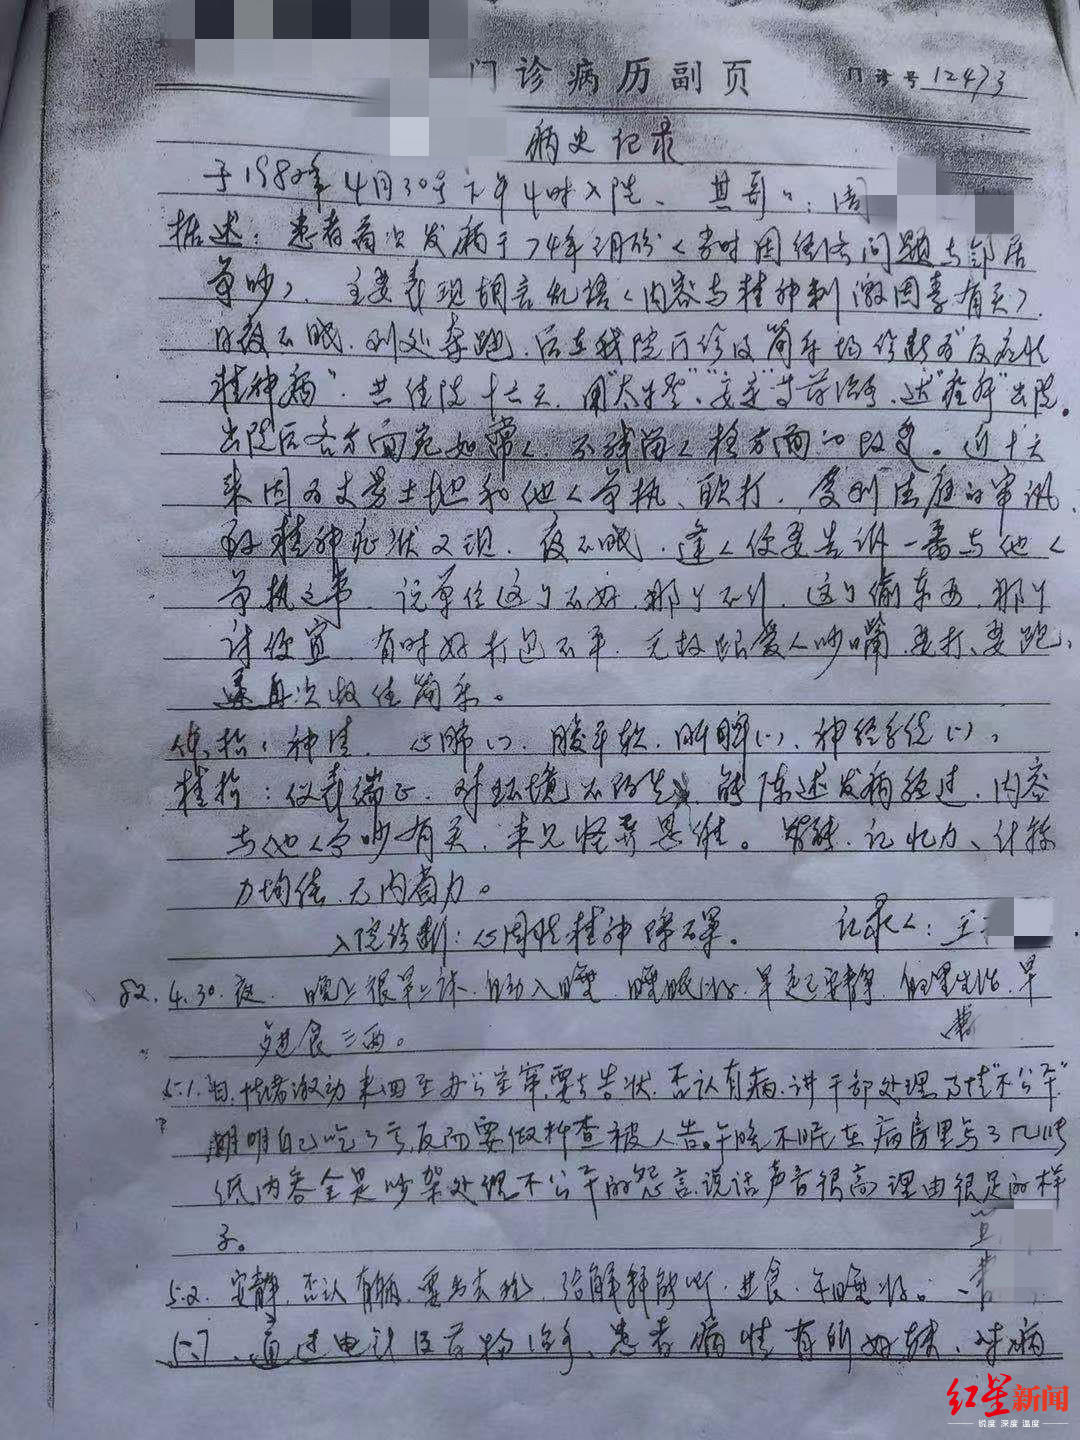 门诊病历副页 门诊号 12473
病史记录
于1982年4月30号下午4时入院、其哥:周
据述:患者首次发病于74年2月份(当时因经济问题与邻居
争吵)，主要表现胡言乱语(内容与精神刺激因素有关)
日夜不眠、到处奔跑，后在我院门诊及简易场诊断为"反应性
精神病"。共住院十六天，用
出院后各方面宛如常人，不残留人格方面的改变。近十天
来因为丈量土地和他人争执、殴打，受到法庭的审讯，
致精神症状又现，夜不眠，逢人便要告诉一番与他人
争执之事，说单位这个不好，那个不行，这个偷东西，那个
讨便宜，有时好打抱不平，无故跟爱人吵嘴，要打、要跑，
遂再次收住简易。
体检:神清，心肺(-)，腹平软，肝脾(-)，神经系统(-)。
精检:仪表端正，对环境不陌生，能陈述发病经过，内容
与他人争吵有关，未见怪异思维。智能、记忆力、计算
力均佳，无内省力。
入院诊断:心因性精神障碍。 记录人:王
82.4.30.夜 晚上很早上床，自动入睡，睡眠好，早起安静，自理生活，早
餐进食三两。
5.1.日 情绪激动，来回至办公室窜，要去告状，否认有病，讲干部处理事情"不公平"
明明自己吃了亏，反而要做检查被人告。午睡不眠在病房里写了几张
纸，内容全是吵架处理不公平的怨言，说话声音很高，理由很足的样
子。
5.2. 安静，否认有病，要出去玩，给解释能听，进食、午睡好。
5.7、通过电针及药物治疗，患者病情有所好转，对病
红星新闻
锐度 深度 温度